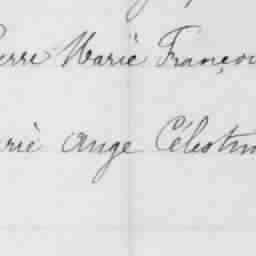 erre Marie Françoi
rie Ange Célestin